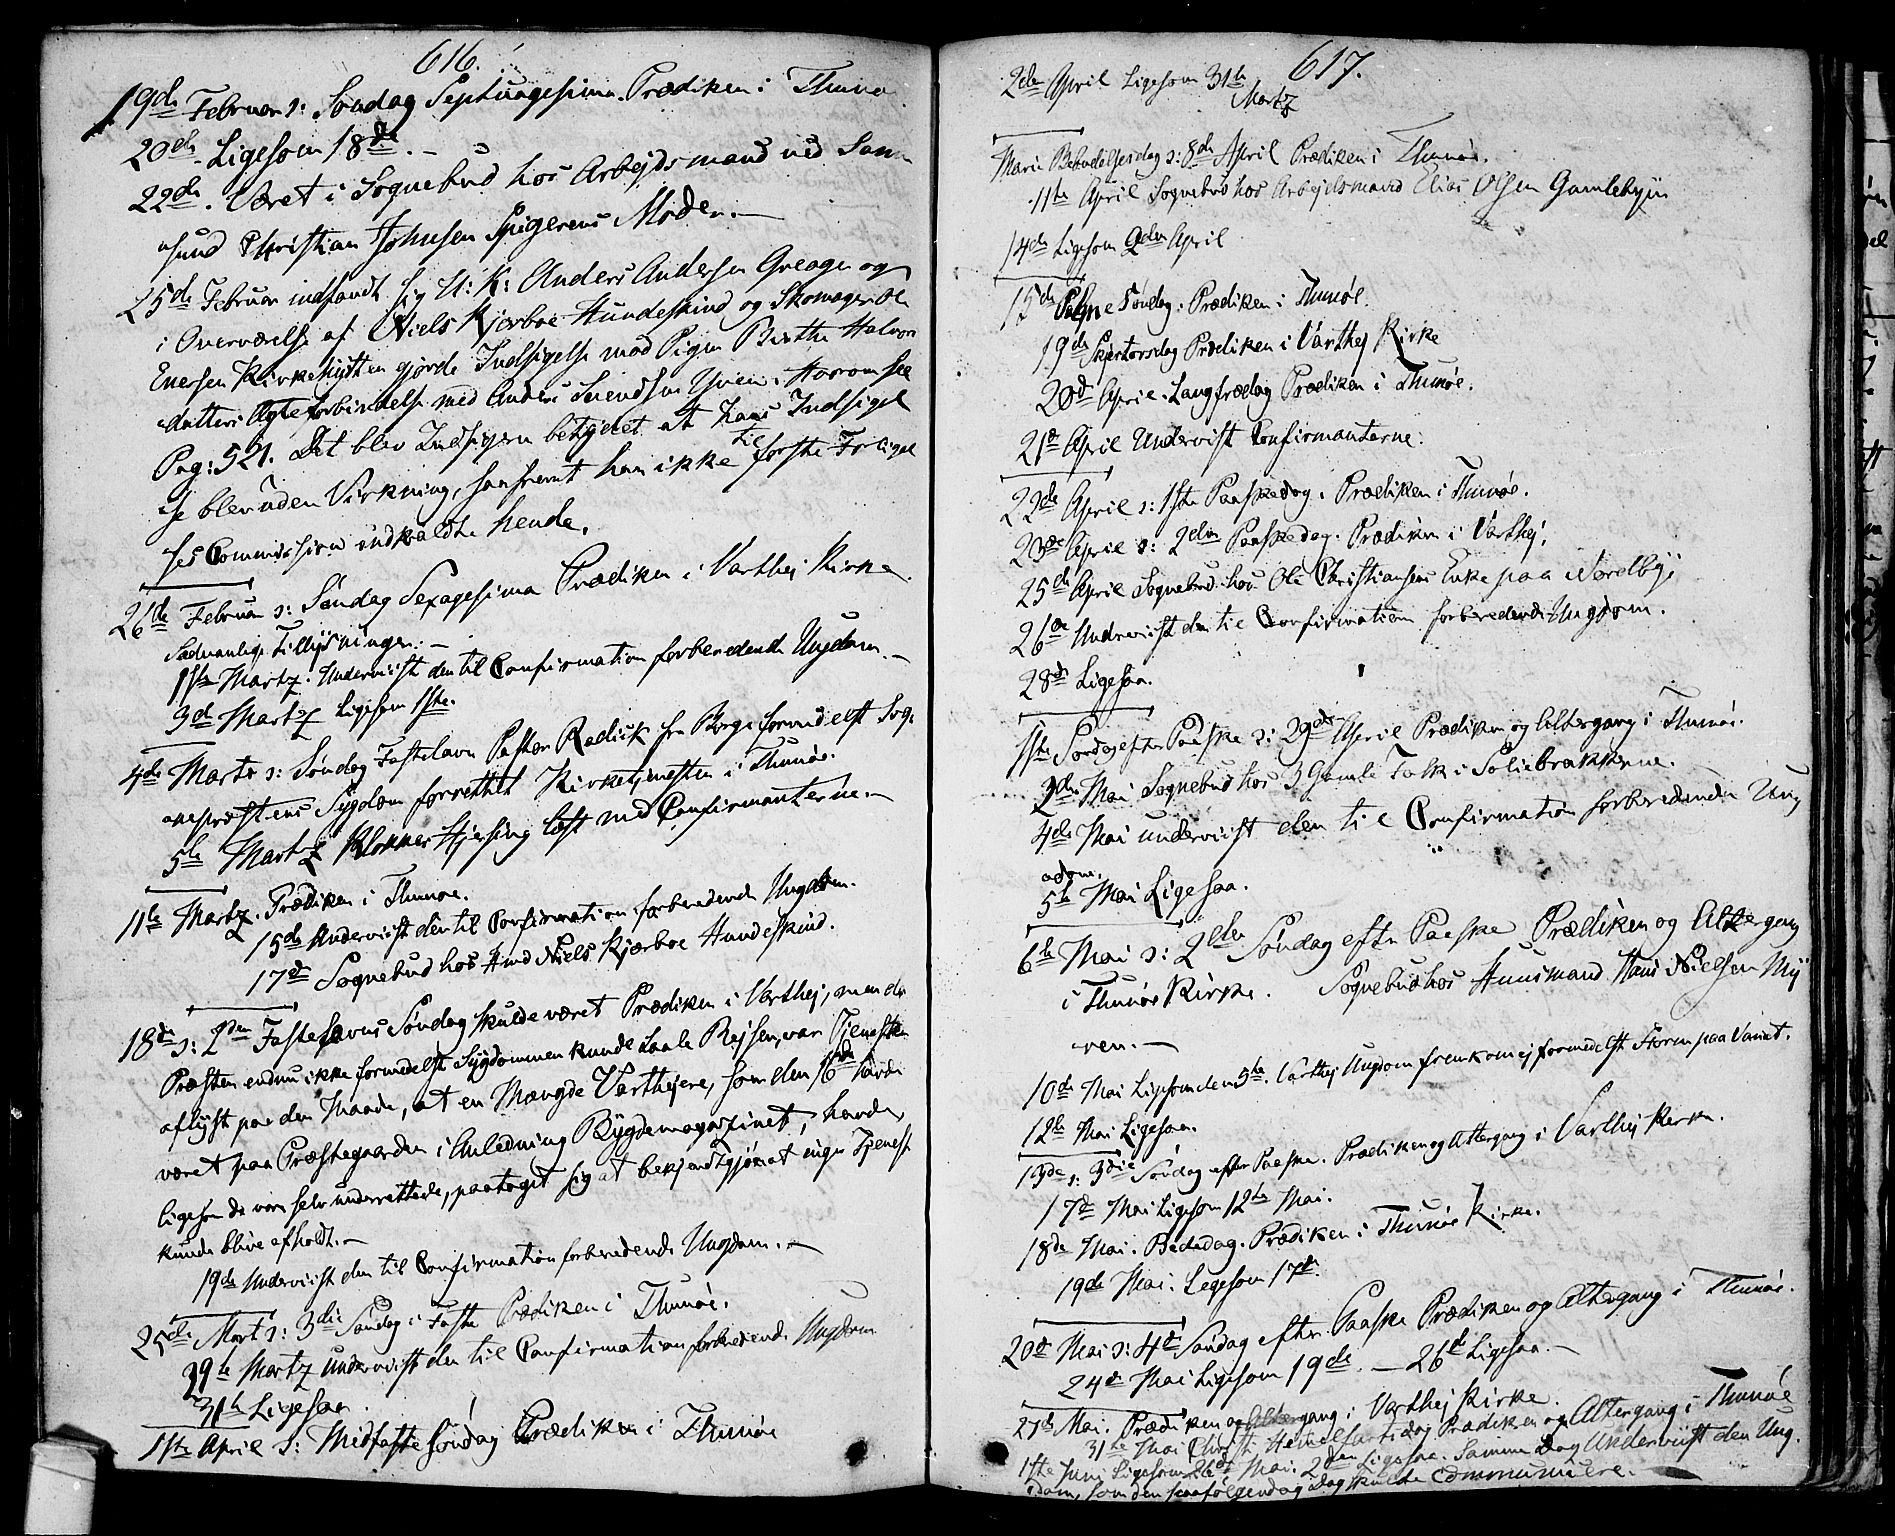 616.
19de Februar ɔ: Søndag Septuagesima. Prædiken i Thunø
20de Ligesom 18de. -
22de. Været i Sognebud hos Arbejdsmand ved Sam
sund Christian Johnsen Spigerens Moder. -
25de Februar indfandt sig U: K: Anders Andersen Greager og
i Overværelse af Niels Kjerboe Hundeskind og Skomager Ole
Enersen Kirkehytten gjorde Indsigelse mod Pigen Birthe Halvor
datters Ægteforbindelse med Anders Svendsen
Pag: 521. Det blev Indsigeren betydet at hans Indsigel
se blev uden Virkning, saafremt han ikke til første Forligel
ses Commission indkaldte hende.
26de Februar ɔ: Søndag Sexagesima Prædiken i Varthej Kirke.
Sædvanlige Tillysninger. -
1ste Martz. Underviist den til Confirmation forberedende Ungdom. -
3de Martz Ligesom 1ste.
4de Marts ɔ: Søndag Fastelavn Pastor Radick fra Borge formedelst Sog
nepræstens Sygdom forrettet Kirketjenesten i Thunøe.
5te Martz Klokker Hjersing læst med Confirmanterne. -
11te Martz. Prædiken i Thunøe.
15de Underviist den til Confirmation forberedende Ungdom.
17de Sognebud hos Hmd Niels Kjærboe Hundeskind.
18de ɔ: 2den Fastelavns Søndag skulde været Prædiken i Varthej, men da
Præsten endnu ikke formedelst Sygdommen kunde taale Rejsen, var Tjenesten
aflyst paa den Maade, at en Mængde Varthejere, som den 16de havde
været paa Præstegaarden i Anledning Bygdemagazinet, havde,
ligesom de vare selv underrettede, paataget sig at bekjendtgjøre at ingen Tjeneste
kunde blive afholdt. -
19de Underviist den til Confirmation forberedende Ungdom. -
25de Mart ɔ: 3die Søndag i Faste Prædiken i Thunøe.
29de Martz underviist den til Confirmation forberedende Ungdom
31te Ligesaa.
1ste April ɔ: Midfaste Søndag Prædiken i Thunøe
617.
2den April Ligesom 31te
Martz
Mariæ Bebudelsesdag ɔ: 8de April Prædiken i Thunøe.
11te April Sognebud hos Arbejdsmand Elias Olsen Gamlebyen
14de Ligesom 2den April
15de Palme Søndag. Prædiken i Thunøe.
19de Skjertorsdag Prædiken i Varthej Kirke
20de April. Langfredag Prædiken i Thunøe.
21de April Underviist Confirmanterne.
22de April ɔ: 1ste Paaskedag. Prædiken i Thunøe.
23de April ɔ: 2den Paaskedag. Prædiken i Varthej.
25de April Sognebud hos Ole Christiansens Enke paa Nordbye,
26de Underviist den til Confirmation forberedende Ungdom.
28de Ligesaa.
1ste Søndag efter Paaske ɔ: 29de April Prædiken og Altergang i Thunøe.
2den Mai Sognebud hos 3 Gamle Folk i Soliebrakkerne.
4de Mai underviist den til Confirmation forberedende Ung
dom.
5te Mai Ligesaa.
6te Mai ɔ: 2den Søndag efter Paaske Prædiken og Altergang
i Thunøe Kirke. Sognebud hos Huusmand Hans Nielsen My
ren. -
10de Mai Ligesom den 5te. Varthej Ungdom fremkom ej formedelst Storm paa Vandet.
12te Mai Ligesaa.
13de ɔ: 3die Søndag efter Paaske. Prædiken og Altergang i Varthej Kirke.
17de Mai Ligesom 12te Mai.
18de Mai. Bededag. Prædiken i Thunøe Kirke.
19de Mai. Ligesom 17de.
20de Mai ɔ: 4de Søndag efter Paaske Prædiken og Altergang i Thunøe.
24de Mai Ligesom 19de. - 26de Ligesaa. -
27de Mai. Prædiken og Altergang i Varthej Kirke.
31te Mai Christi Himmelfartsdag Prædiken og Altergang i Thunøe
1ste Juni Ligesom 26de Mai. 2den Ligesaa. Samme Dag Underviist den Ung
dom, som den paafølgende Dag skulde Communicere.